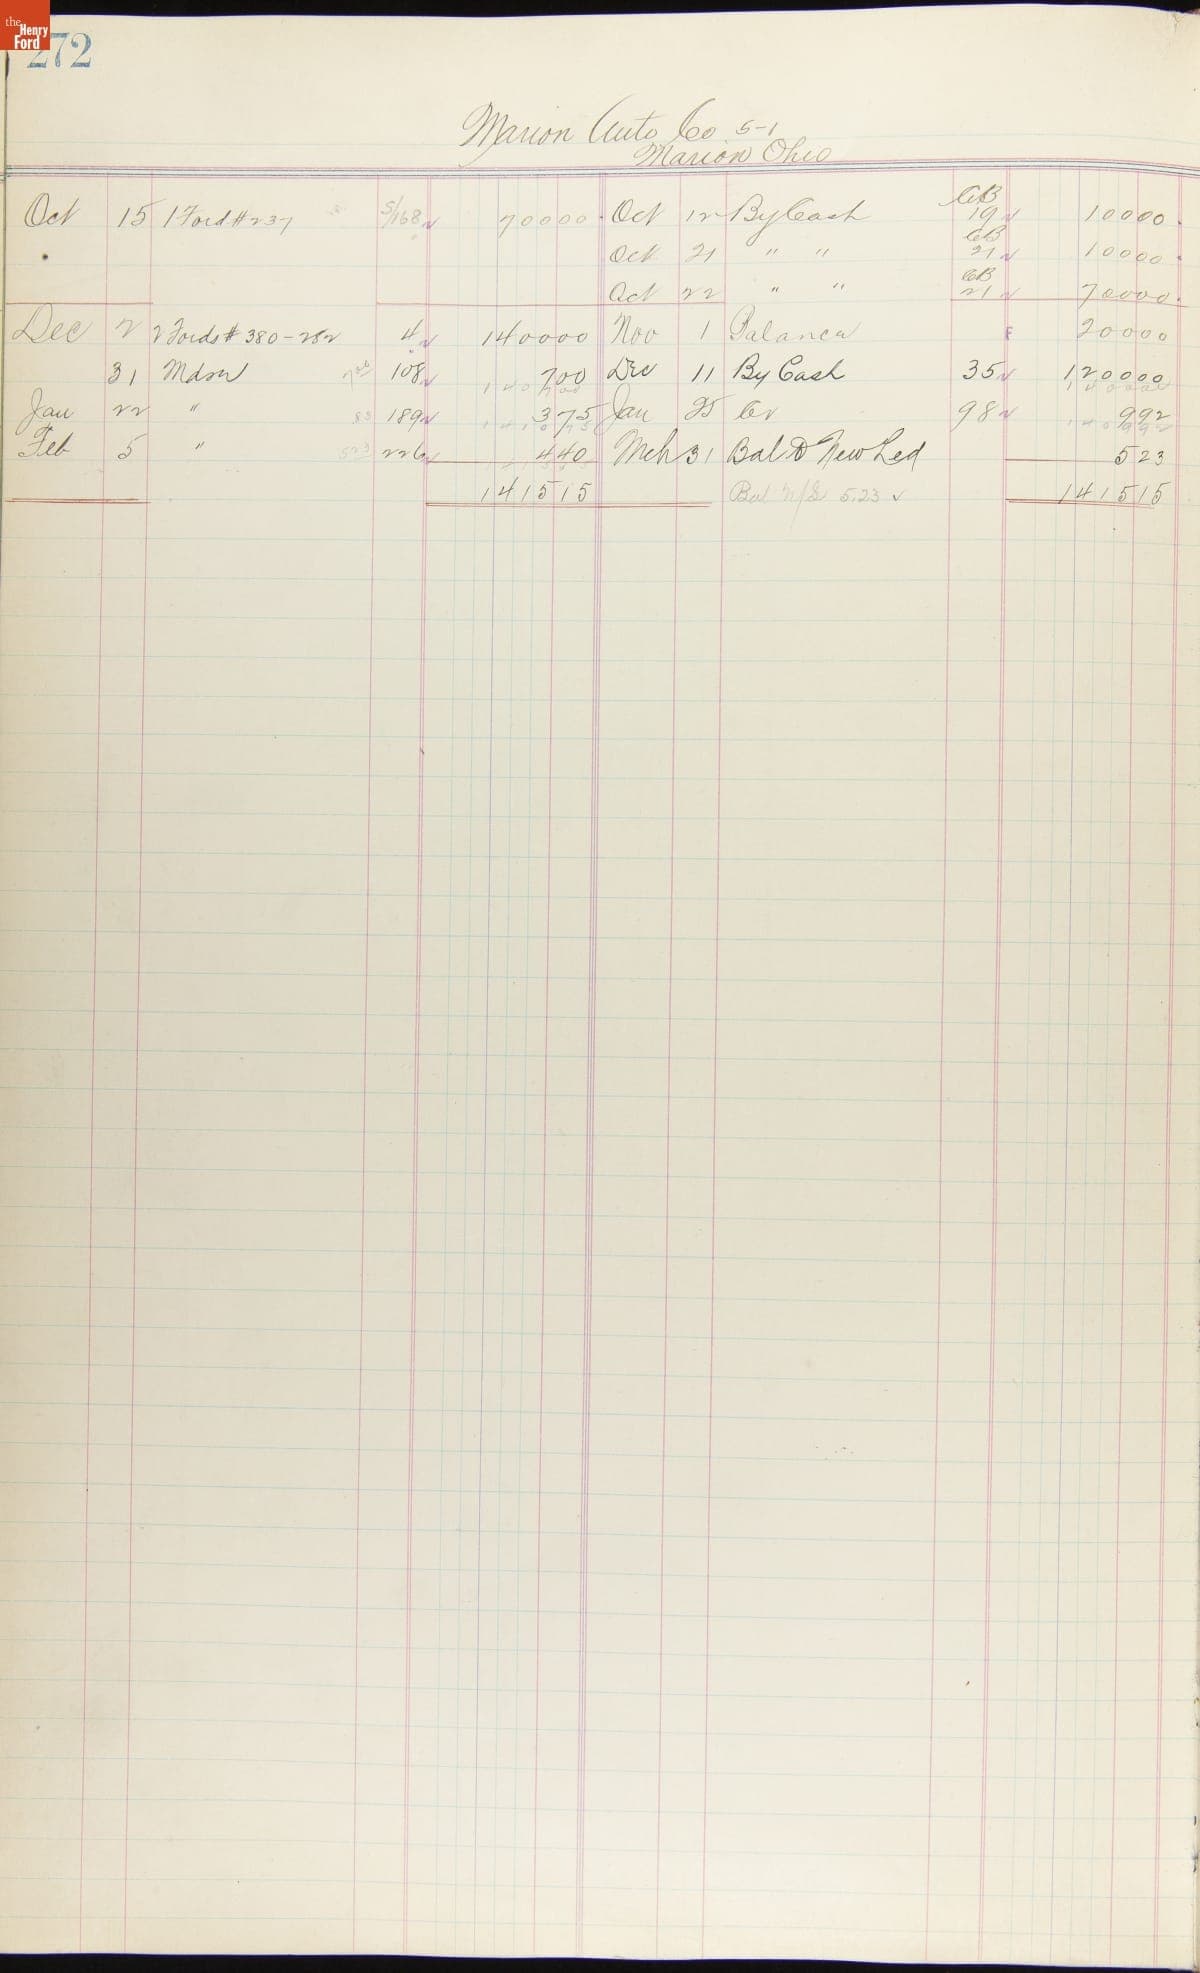 the Henry Ford
272
Marion Auto Co 5-1
Marion Ohio
Oct 15 1 Ford # 237 S/168 70000 Oct 12 By Cash CB 19 10000
Oct 21 " " CB 21 10000
Oct 22 " " CB 21 70000
Dec 2 2 Fords # 380-282 4 140000 Nov 1 Balance 20000
31 Mdse 700 108 700 Dec 11 By Cash 35 120000
140700 140000
Jan 22 " 83 189 375 Jan 25 Cr 98 992
141075 140992
Feb 5 " 523 226 440 Mch 31 Bal to New Led 523
141515
141515 Bal N/L 5.23 ✓ 141515